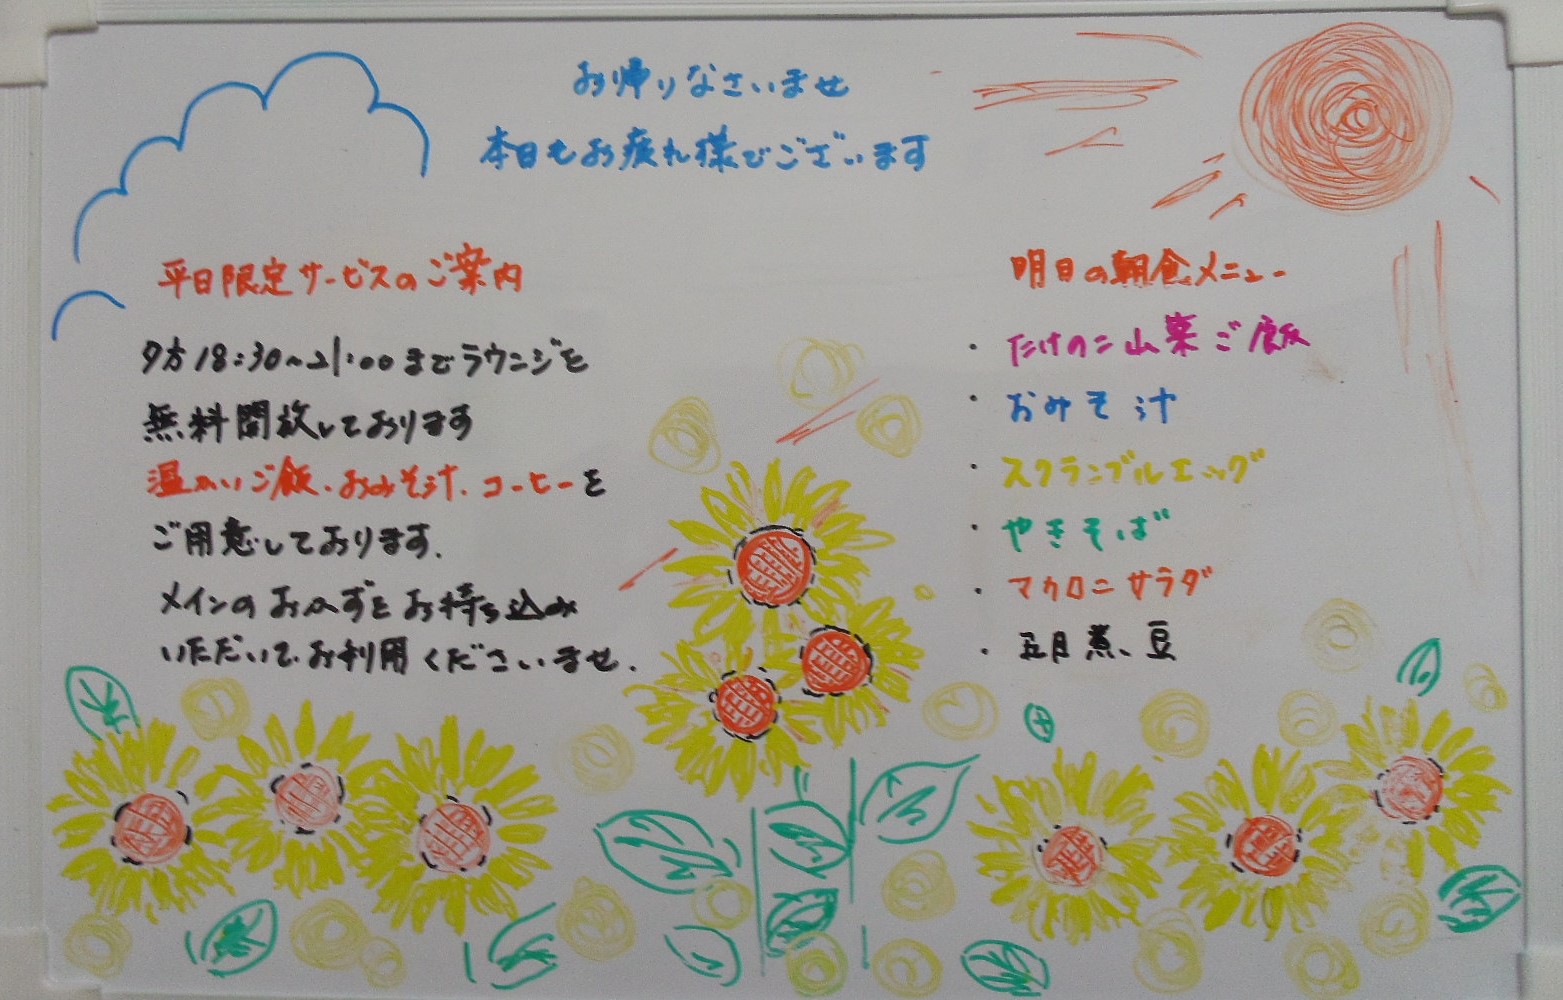 お帰りなさいませ
本日もお疲れ様でございます
平日限定サービスのご案内
夕方18:30〜21:00までラウンジを
無料開放しております
温かいご飯、おみそ汁、コーヒーを
ご用意しております.
メインのおかずをお持ち込み
いただいて、お利用くださいませ.
明日の朝食メニュー
・たけのこ山菜ご飯
・おみそ汁
・スクランブルエッグ
・やきそば
・マカロニサラダ
・五目煮豆